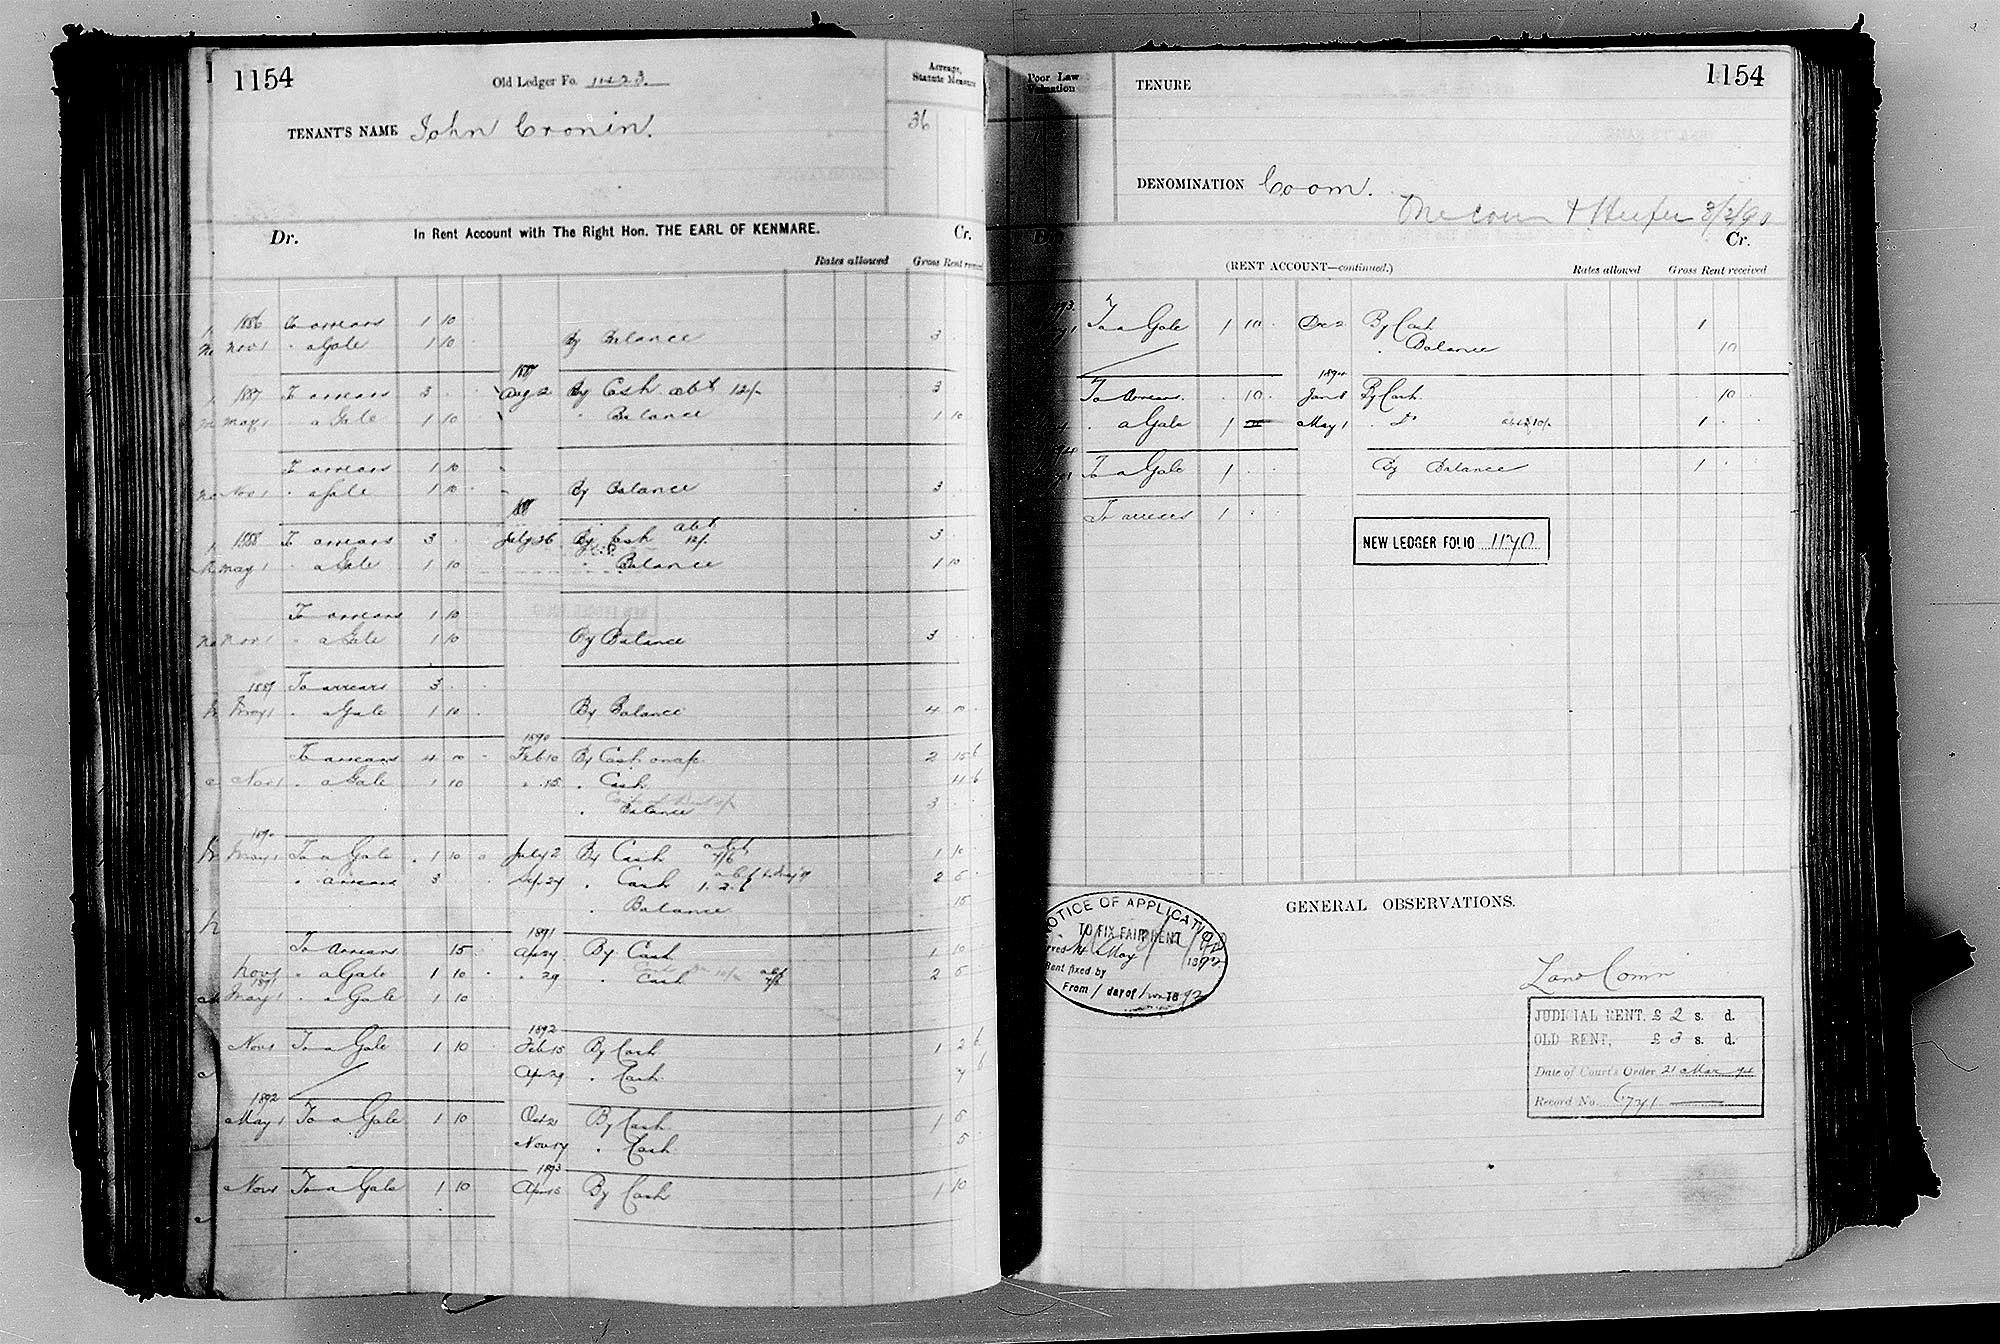 1154
Old Ledger Fo. 1423
Acreage, Statute Measure
TENANT'S NAME John Cronin.
36
Dr. In Rent Account with The Right Hon. THE EARL OF KENMARE. Cr.
Rates allowed Gross Rent received
1886 To arrears 1 10
Nov 1 " a Gale 1 10 By Balance 3
1887
1887 To arrears 3 Aug 2 By Cash abt 12/- 3
May 1 " a Gale 1 10 " Balance 1 10
To arrears 1 10
Nov 1 " a Gale 1 10 By Balance 3
1888
1888 To arrears 3 July 26 By Cash abt 12/- 3
May 1 " a Gale 1 10 " Balance 1 10
To arrears 1 10
Nov 1 " a Gale 1 10 By Balance 3
1889 To arrears 3
May 1 " a Gale 1 10 By Balance 4 10
1890
To arrears 4 10 Feb 10 By Cash 2 15 6
Nov 1 " a Gale 1 10 " 15 " Cash 4 6
" Balance 3
1890
May 1 To a Gale 1 10 July 2 By Cash abt 7/6 1 10
" arrears 3 Sep 24 " Cash 1. 2. 6 2 5
" Balance 15
1891
To arrears 15 Apr 24 By Cash 1 10
Nov 1 " a Gale 1 10 " 29 " Cash abt 7/6 2 5
1891
May 1 " a Gale 1 10
1892
Nov 1 To a Gale 1 10 Feb 15 By Cash 1 2 6
Apr 29 " Cash 7 6
1892
May 1 To a Gale 1 10 Oct 21 By Cash 1 5
Nov 17 " Cash 5
1893
Nov 1 To a Gale 1 10 Apr 15 By Cash 1 10
Poor Law Valuation
TENURE
1154
DENOMINATION Coom.
One cow & Heifer 3/2/90
Cr.
(RENT ACCOUNT—continued.) Rates allowed Gross Rent received
To a Gale 1 10 Dec 2 By Cash 1
" Balance 10
1894
To Arrears 10 Jan 8 By Cash 10
" a Gale 1 May 1 " Do abt 10/- 1
To a Gale 1 By Balance 1
To arrears 1
NEW LEDGER FOLIO 1170
GENERAL OBSERVATIONS.
NOTICE OF APPLICATION
TO FIX FAIR RENT
May 1892
Rent fixed by
From 1 day of Nov 1892
Land Comn
JUDICIAL RENT, £ 2 s. d.
OLD RENT, £ 3 s. d.
Date of Court's Order 21 Mar 94
Record No. 6741